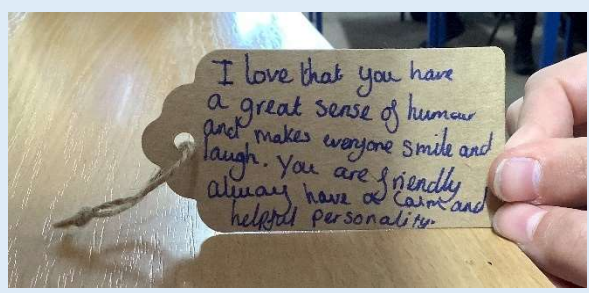 I love that you have
a great sense of humour
and makes everyone smile and
laugh. You are friendly
alway have a calm and
helpful personality.